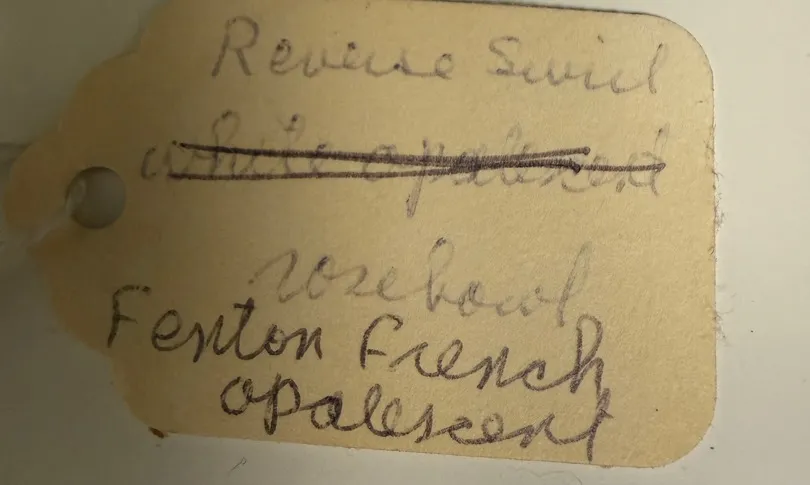 Reverse Swirl
white opalescent
rosebowl
Fenton French
opalescent